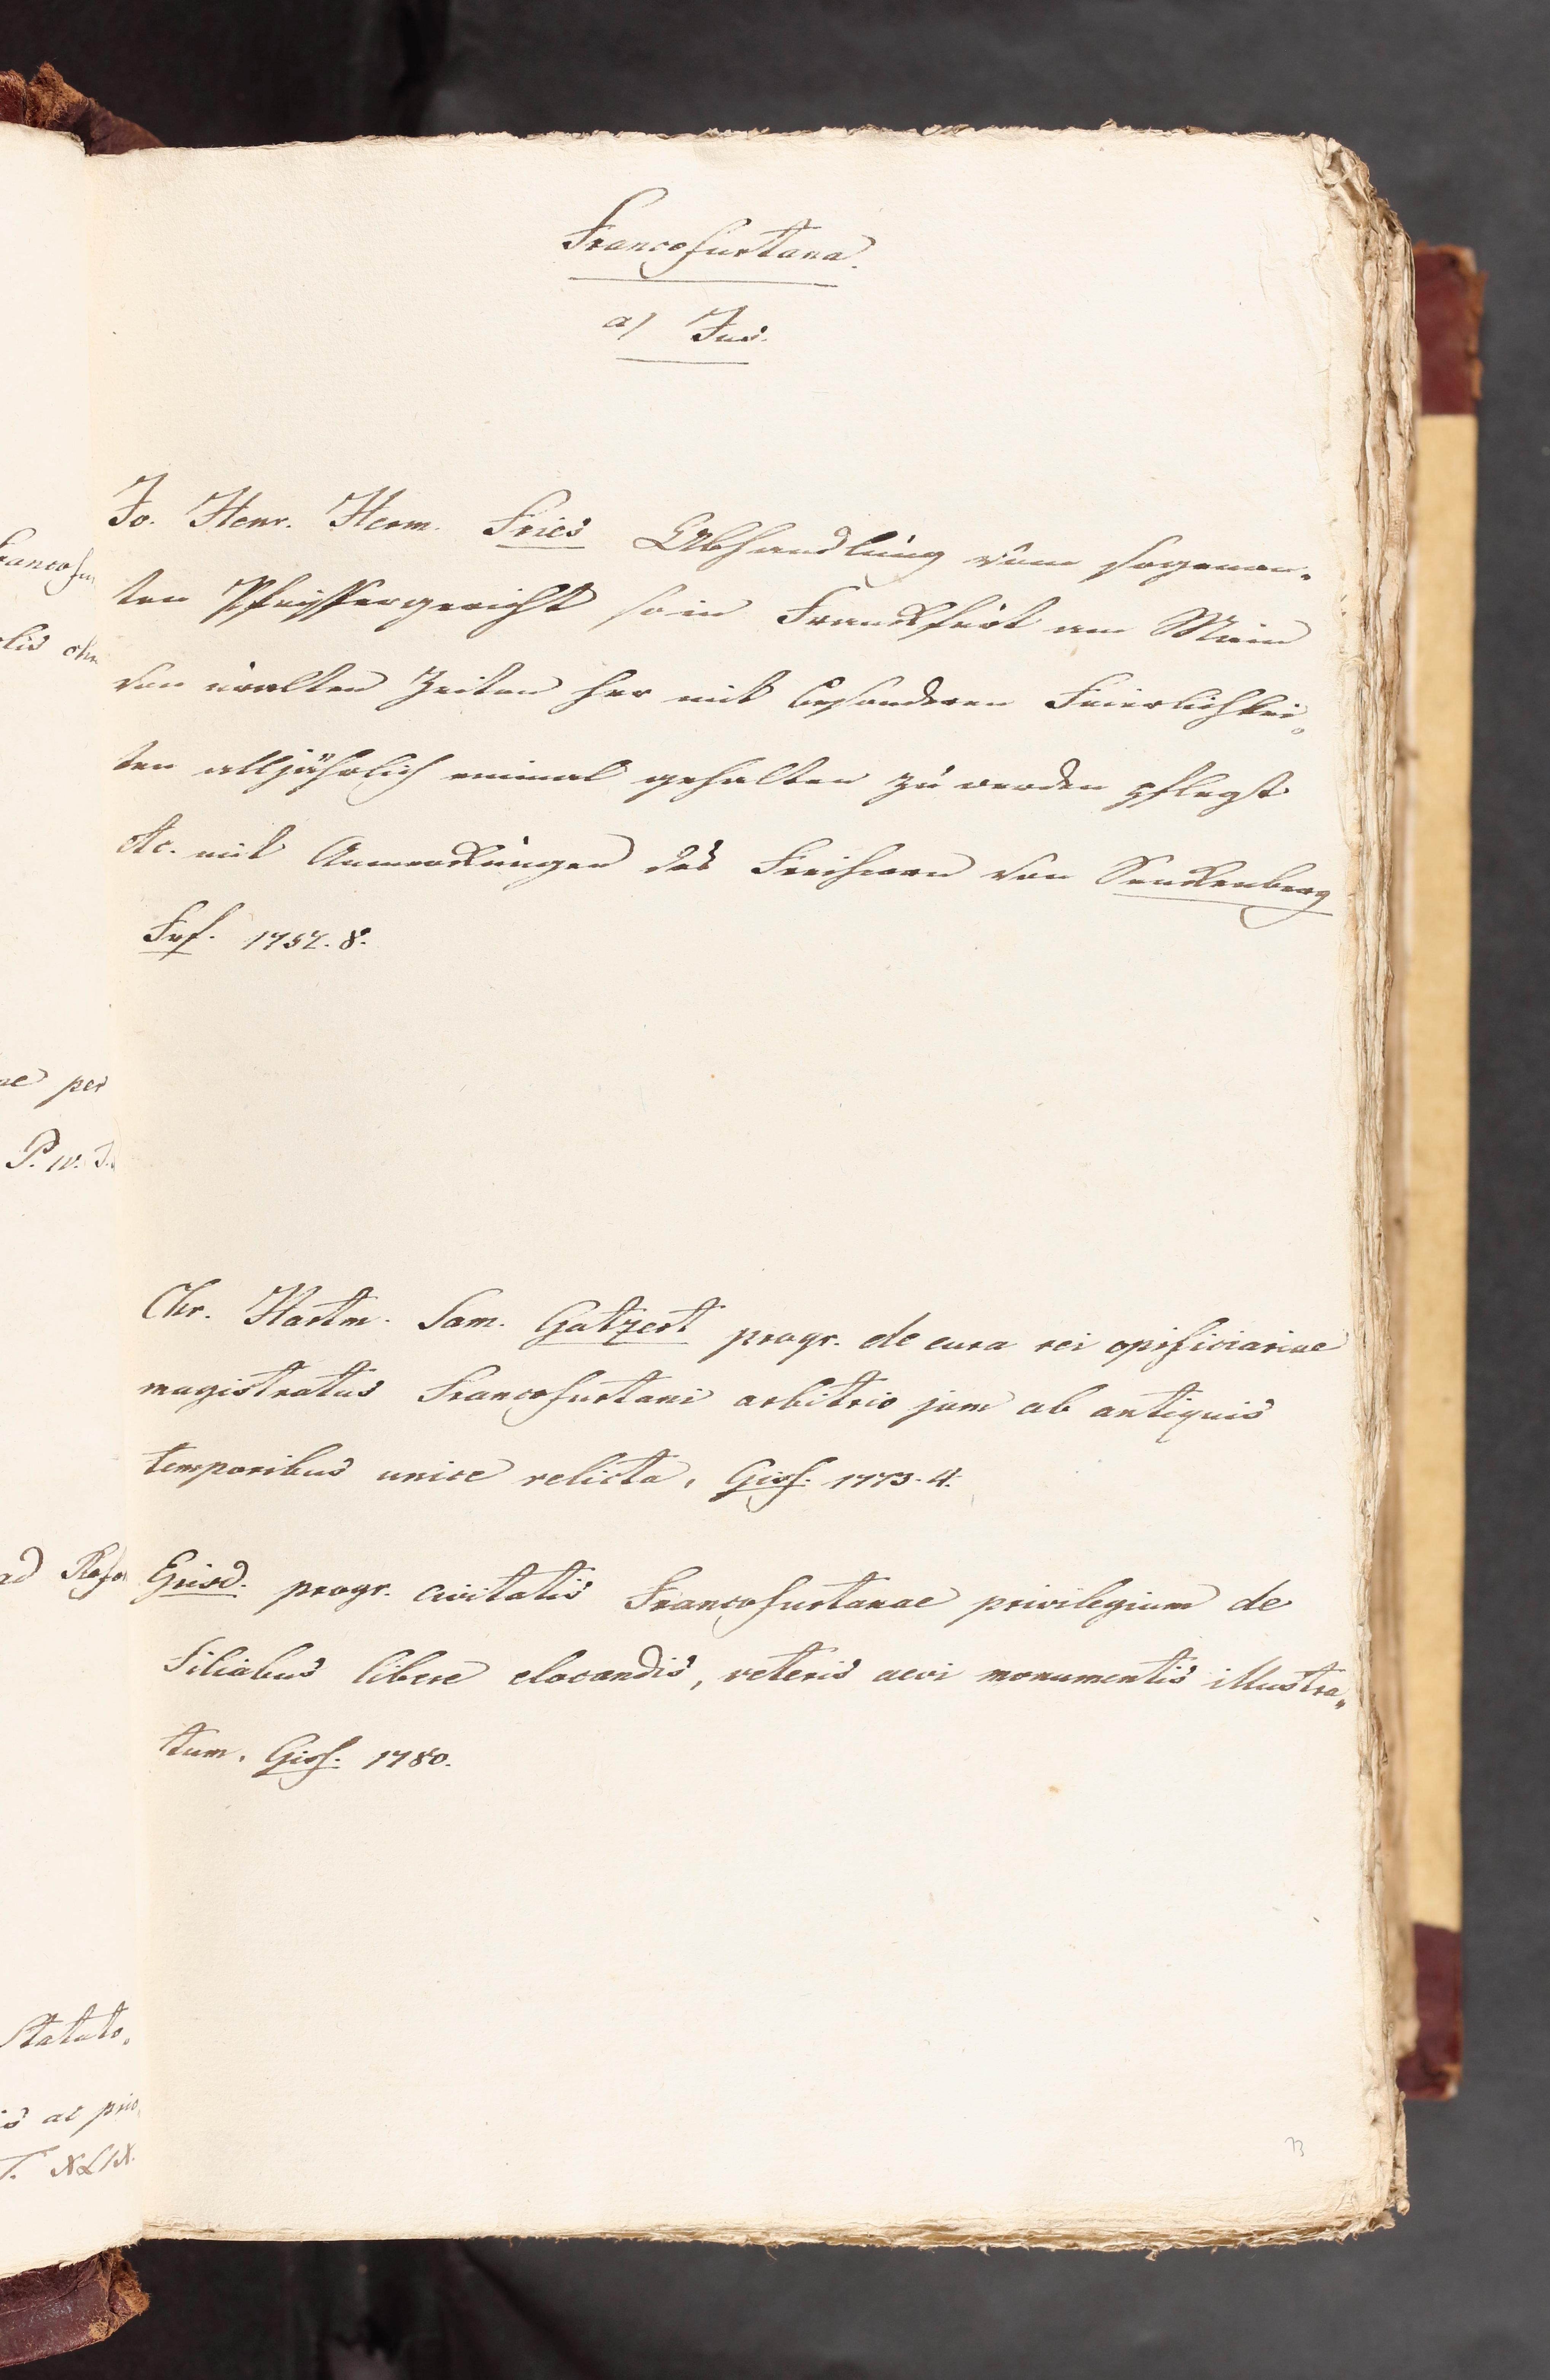 Francofurtana.
a) Jus.
Jo. Henr. Herm. Fries Abhandlung vom sogenan-
ten Pfeiffergericht so in Franckfurt am Main
von uralten Zeiten her mit besonderen Feierlichkei-
ten alljährlich einmal gehalten zu werden pflegt
etc. mit Anmerckungen des Freiherrn von Senckenberg
Frf. 1752. 8.
Chr. Hartm. Sam. Gatzert progr. de cura rei opificiariae
magistratus Francofurtani arbitrio jam ab antiquis
temporibus unice relicta, Giss. 1773. 4.
Eiusd. progr. civitatis Francofurtanae privilegium de
filiabus libere elocandis, veteris aevi monumentis illustra„
tum, Giss. 1780.
73
Francofur
olis
ae per
P. IV. T.
ad Refo
Statuto,
is ac prio
T. XLIX.